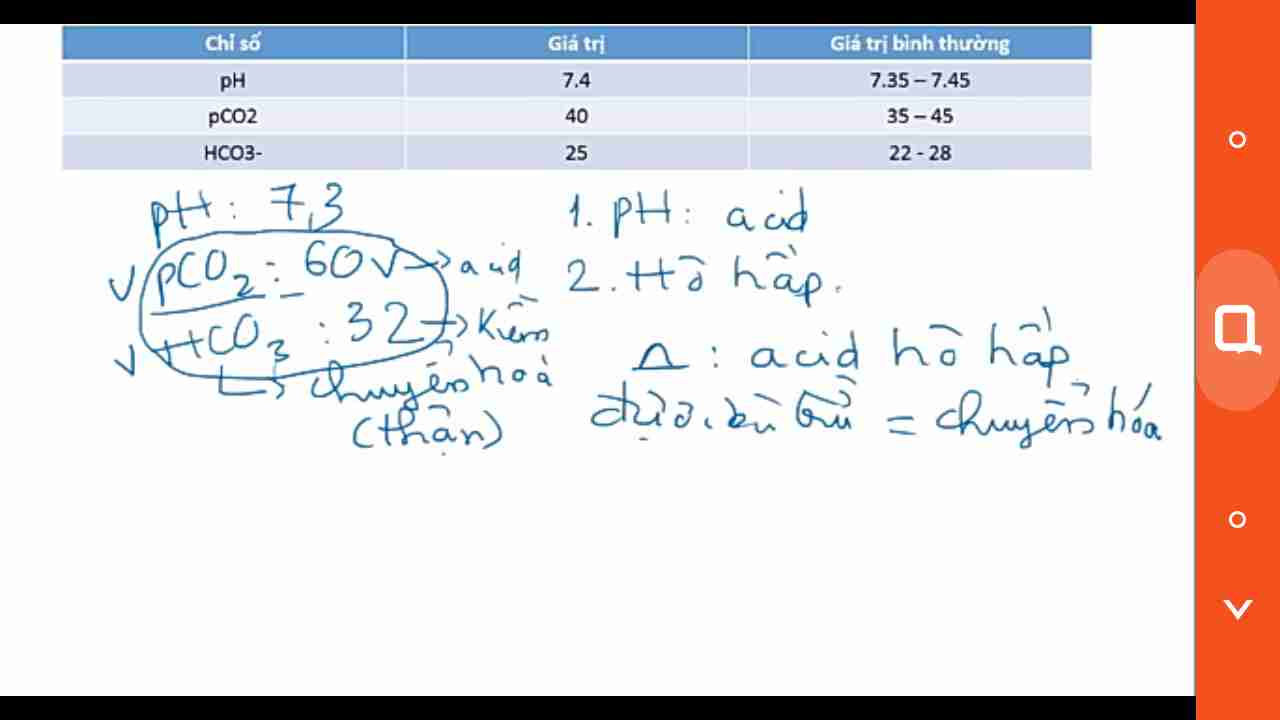 Chỉ số Giá trị Giá trị bình thường
pH 7.4 7.35 – 7.45
pCO2 40 35 – 45
HCO3- 25 22 - 28
pH : 7,3
pCO2 : 60 → acid
HCO3 : 32 → Kiềm
↳ chuyển hoá
(thận)
1. pH : acid
2. Hô hấp.
Δ : acid hô hấp
được bù trừ = chuyển hóa